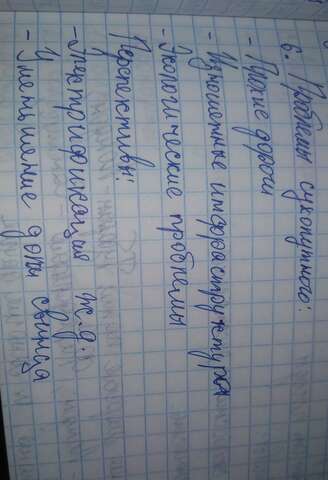 6. Проблемы сухопутного:
- Плохие дороги
- Изношенные инфраструктура
- Экологические проблемы
Перспективы:
- Электрификация ж.д.
- Уменьшение доли свинца